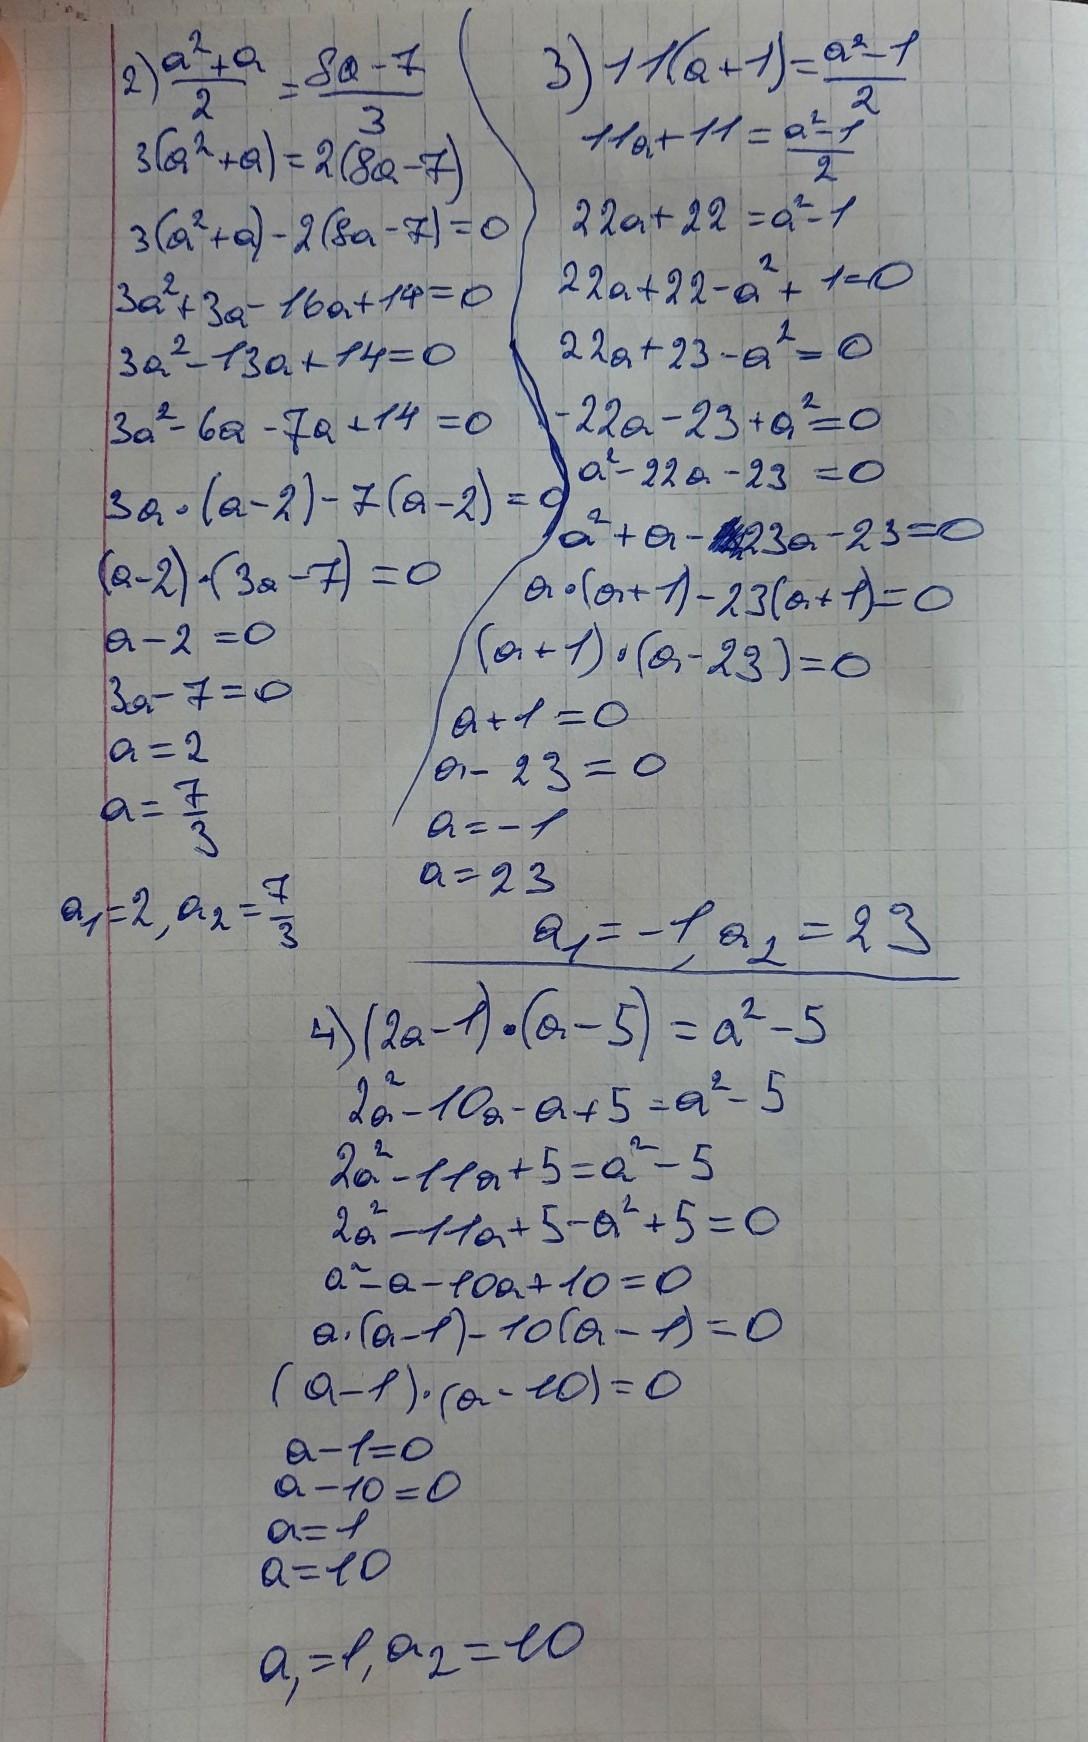 2) a²+a/2 = 8a-7/3
3(a²+a)=2(8a-7)
3(a²+a)-2(8a-7)=0
3a²+3a-16a+14=0
3a²-13a+14=0
3a²-6a-7a+14=0
3a·(a-2)-7(a-2)=0
(a-2)·(3a-7)=0
a-2=0
3a-7=0
a=2
a=7/3
a₁=2, a₂=7/3
3) 11(a+1)=a²-1/2
11a+11=a²-1/2
22a+22=a²-1
22a+22-a²+1=0
22a+23-a²=0
-22a-23+a²=0
a²-22a-23=0
a²+a-23a-23=0
a·(a+1)-23(a+1)=0
(a+1)·(a-23)=0
a+1=0
a-23=0
a=-1
a=23
a₁=-1, a₂=23
4) (2a-1)·(a-5)=a²-5
2a²-10a-a+5=a²-5
2a²-11a+5=a²-5
2a²-11a+5-a²+5=0
a²-a-10a+10=0
a·(a-1)-10(a-1)=0
(a-1)·(a-10)=0
a-1=0
a-10=0
a=1
a=10
a₁=1, a₂=10